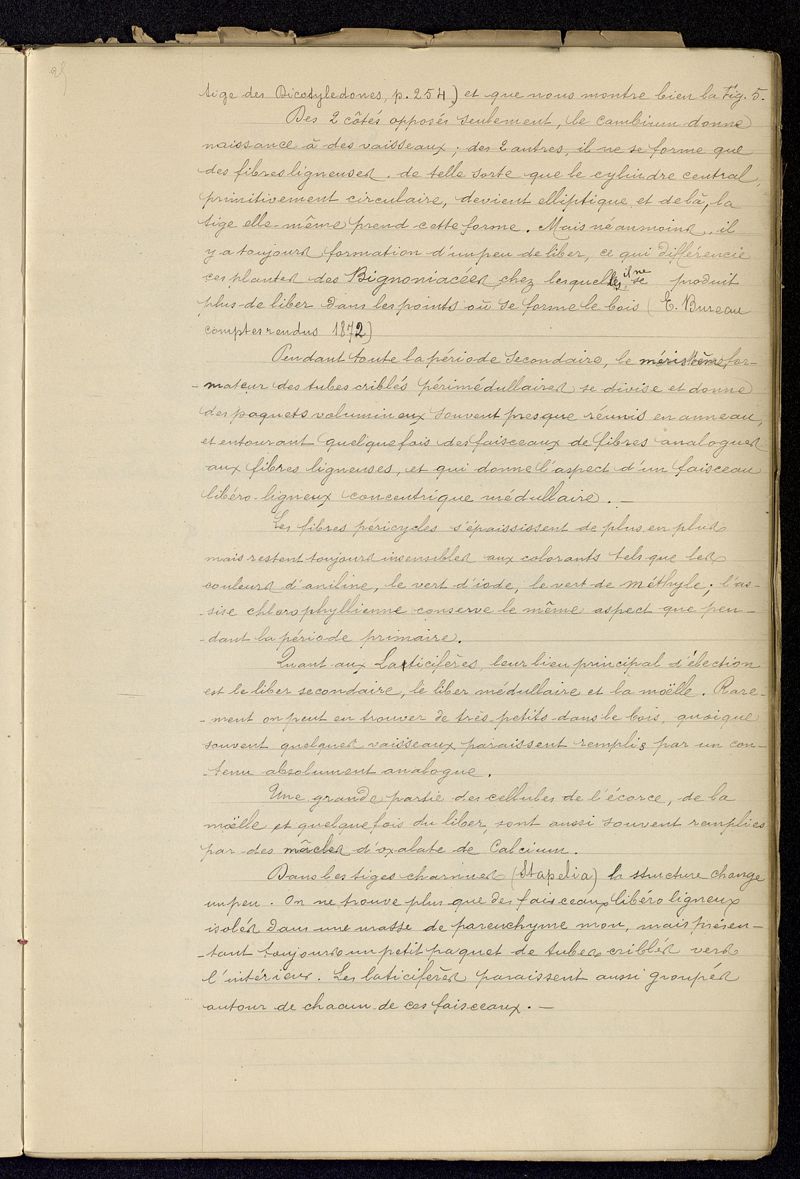 tige des Dicotyledones, p. 254,) et que nous montre bien la Fig. 5.
Des 2 côtés opposés seulement, le cambium donne
naissance à des vaisseaux ; des 2 autres, il ne se forme que
des fibres ligneuses. de telle sorte que le cylindre central,
primitivement circulaire, devient elliptique et de là, la
tige elle-même prend cette forme. Mais néanmoins, il
y a toujours formation d'un peu de liber, ce qui différencie
ces plantes des Bignoniacées chez lesquelles il ne se produit
plus de liber dans les points où se forme le bois ( E. Bureau
comptes rendus 1872)
Pendant toute la période secondaire, le méristème for-
-mateur des tubes criblés périmédullaires se divise et donne
des paquets volumineux souvent presque réunis en anneau,
et entourant quelquefois des faisceaux de fibres analogues
aux fibres ligneuses, et qui donne l'aspect d'un faisceau
libéro-ligneux concentrique médullaire. —
Les fibres péricycles s'épaississent de plus en plus
mais restent toujours insensibles aux colorants tels que les
couleurs d'aniline, le vert d'iode, le vert de méthyle ; l'as-
-sise chlorophyllienne conserve le même aspect que pen-
-dant la période primaire.
Quant aux Laticifères, leur lieu principal d'élection
est le liber secondaire, le liber médullaire et la moëlle. Rare-
-ment on peut en trouver de très petits dans le bois, quoique
souvent quelques vaisseaux paraissent remplis par un con-
-tenu absolument analogue.
Une grande partie des cellules de l'écorce, de la
moëlle et quelquefois du liber, sont aussi souvent remplies
par des mâcles d'oxalate de Calcium.
Dans les tiges charnues (Stapelia) la structure change
un peu. On ne trouve plus que des faisceaux libéro ligneux
isolés dans une masse de parenchyme mou, mais présen-
tant toujours un petit paquet de tubes criblés vers
l'intérieur. Les laticifères paraissent aussi groupés
autour de chacun de ces faisceaux. —